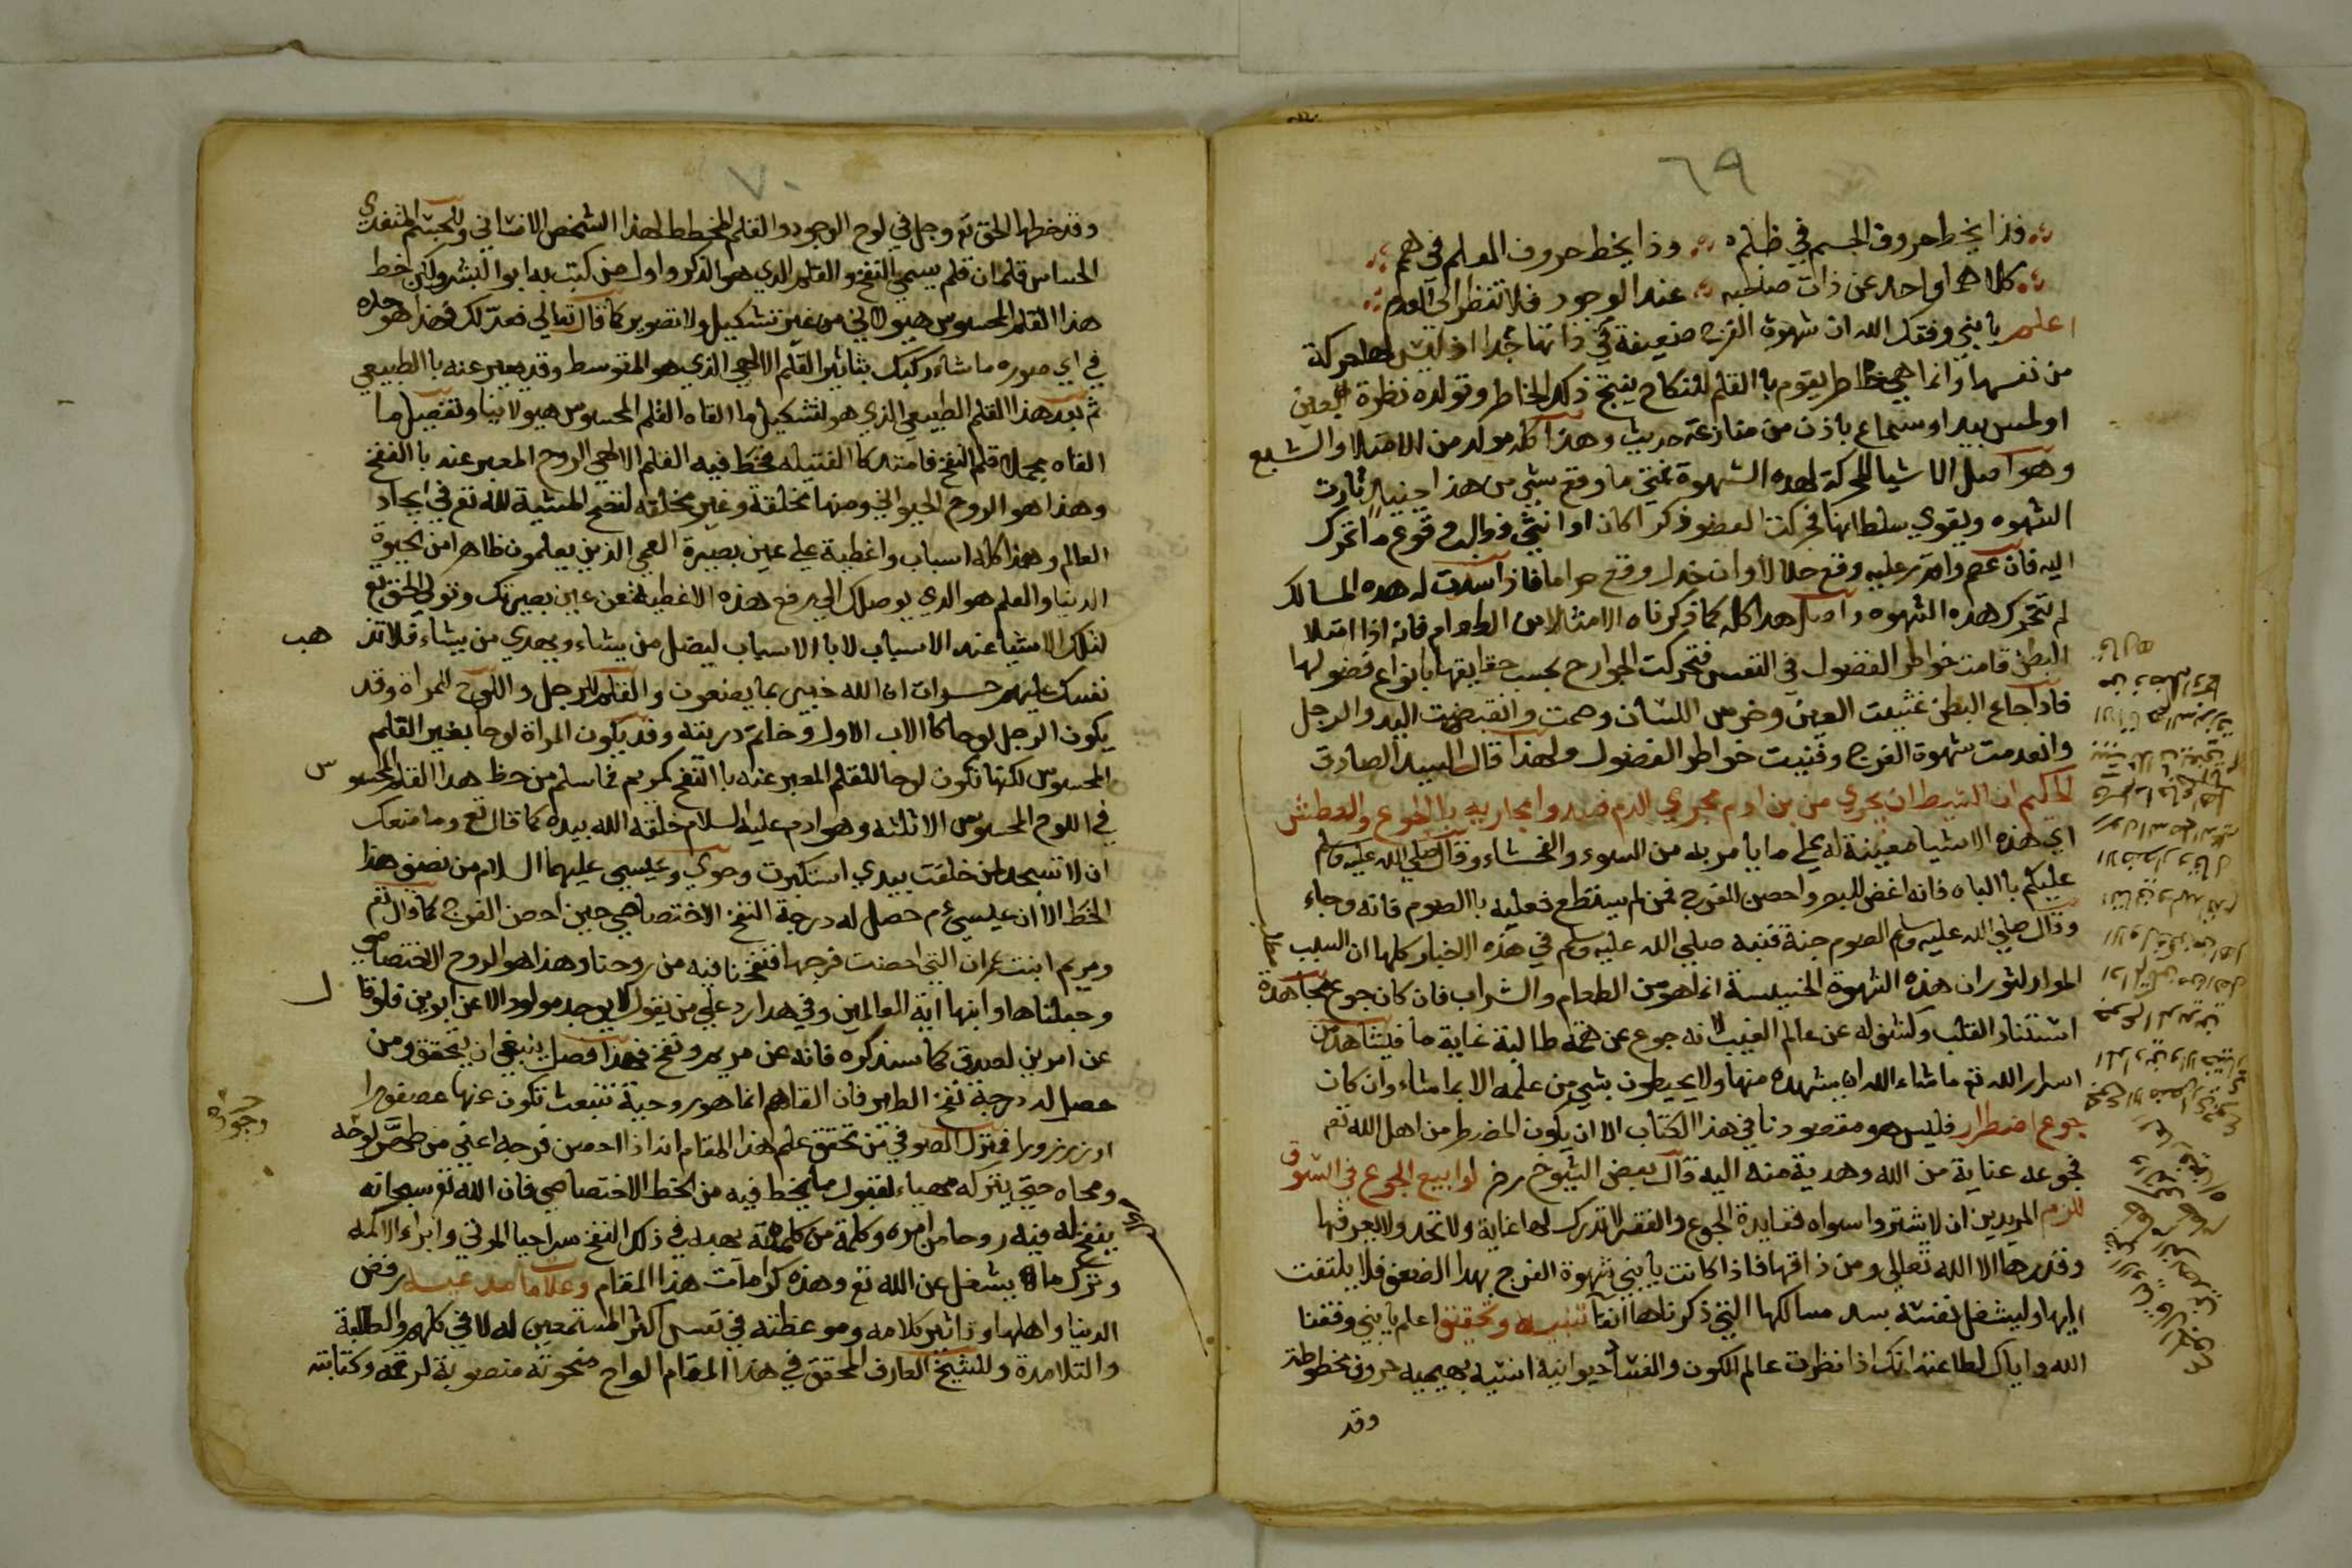 ٦٩
فذا يخط حروف الجسم في ظلم وذا يخط حروف العلم في همم
كلاهما واحد عن ذات صاحبه عند الوجود فلا تنظر الى العدم
اعلم يا بني وفقك الله ان شهوة الفرج ضعيفة في ذاتها جدا اذ ليس لها حركة
من نفسها وانما هي خاطر يقوم با القلم للنكاح ينتج ذلك الخاطر وتولده نظرة بعين
او لمس بيد او سماع باذن من منازعة حديث وهذا كله مولد من الامتلا والشبع
وهو اصل الاشيا المحركة لهده الشهوة فمتى ما وقع شي من هذا جنيا ثارت
الشهوه وتقوي سلطانها فحركت العضو ذكرا كان او انثى فطالب وقوع ما تحرك
اليه فان عصم وامر عليه وقع حلالا وان خدل وقع حراما فاذا سدت له هده المسالك
لم تتحرك هذه الشهوه واصل هدا كله كما ذكرناه الامتلا من الطعام فانه اذا امتلا
البطن قامت خواطر الفضول في النفس فتحركت الجوارح بحسب حقايقها بانواع فضولها
فاذا جاع البطن غشيت العين وخرس اللسان وصمت وانقبضت اليد والرجل
وانعدمت شهوة الفرج وفنيت خواطر الفضول ولهذا قال السيد الصادق
الحاكم ان الشيطان يجري من بن ادم مجري الدم فسدوا مجاريه با الجوع والعطش
اي هذه الاشيا معينة له علي ما يامر به من السوء والفحشاء وقال صلي الله عليه وسلم
عليكم با الباه فانه اغض للبصر واحصن للفرج فمن لم يستطع فعليه با الصوم فانه وجاء
وقال صلي الله عليه وسلم الصوم جنة فنبه صلي الله عليه وسلم في هذه الاخبار كلها ان السبب
المولد لثوران هذه الشهوة الخسيسة انما هو من الطعام والشراب فان كان جوع مجاهدة
استنار القلب وكشف له عن عالم الغيب لانه جوع عن همة طالبة غاية ما فيشاهد من
اسرار الله تع ما شاء الله ان يشهده منها ولا يحيطون بشي من علمه الا بما شاء وان كان
جوع اضطرار فليس هو مقصودنا في هذا الكتاب الا ان يكون المضطر من اهل الله تع
فجوعه عناية من الله وهدية منه اليه قال بعض الشيوخ رض لو ابيع الجوع في السوق
للزم المريدين ان لا يشتروا سواه ففايدة الجوع والفقر لا تدرك لها غاية ولا تحد ولا يعرفها
وقدرها الا الله تعالي ومن ذاقها فاذا كانت يا بني شهوة الفرج بهدا الضعف فلا يلتفت
اليها وليشغل نفسه بسد مسالكها التي ذكرناها انفا تنبيه وتحقيق اعلم يا بني وفقنا
الله واياك لطاعته انك اذا نظرت عالم الكون والفساد حيوانية انسية بهيمية حروف مخطوطة
وقد
٧٠
وقد خطها الحق تع وجل في لوح الوجود والقلم المخطط لهذا الشخص الانساني والجسم المتغدي
الحساس قلمان قلم يسمي النفخ والقلم الذي هو الذكر واول من كتب به ابو البشر ولكن خط
هذا القلم المحسوس هيولاني من غير تشكيل ولا تصوير كما قال تعالي فعدلك فهذا هو حده
في اي صوره ما شاء ركبك بتاثير القلم الالهي الذي هو المتوسط وقد يعبر عنه با الطبيعي
ثم بعد هذا القلم الطبيعي الذي هو لتشكيل ما القاه القلم المحسوس هيولانيا وتفصيل ما
القاه مجملا قلم النفخ فامتد كا الفتيله فخط فيه القلم الالهي الروح المعبر عنه با النفخ
وهذا هو الروح الحيواني ومنها مخلقة وغير مخلقه لتصح المشية لله تع في ايجاد
العالم وهذا كله اسباب واغطية علي عين بصيرة العمي الذين يعلمون ظاهرا من الحيوة
الدنيا والعلم هو الدي يوصلك الي رفع هذه الاغطية عن عين بصيرتك وتولي الحق تع
لتلك الاشيا عند الاسباب لا با الاسباب ليضل من يشاء ويهدي من يشاء فلا تذ هب
نفسك عليهم حسرات ان الله خبير بما يصنعون والقلم للرجل واللوح للمراة وقد
يكون الرجل لوحا كا الاب الاول وخاتم دريته وقد يكون المراة لوحا بغير القلم
المحسوس لكنها تكون لوحا للقلم المعبر عنه با النفخ كمريم فما سلم من خط هدا القلم المحسو س
في اللوح المحسوس الا ثلثه وهو ادم عليه السلام خلقه الله بيده كما قال تع وما منعك
ان لا تسجد لمن خلقت بيدي استكبرت وحوي وعيسي عليهما السلام من نصف هذا
الخط الا ان عيسي عم حصل له درجة النفخ الاختصاصي حين احصن الفرج كما قال تع
ومريم ابنت عمران التي احصنت فرجها فنفخنا فيه من روحنا وهذا هو الروح الاختصاصي
وجعلناها وابنها اية العالمين وفي هدا رد علي من يقول لا يوجد مولود الا عن ابوين فلو قا ل
عن امرين لصدق كما سنذكره فانه عن مريم ونفخ فهذا فصل ينبغي ان يتحقق ومن
حصل له درجة نفخ الطير فان القاهم انما هو روحية تنبعث تكون عنها عصفورا
او زرزورا فمنزل الصوفي من تحقق علم هذا المقام انه اذا احصن فرجه اعني من طمس لوحه
ومحاه حتي يتركه مهياء لقبول ما يخط فيه من الخط الاختصاصي فان الله تع سبحانه
ينفخ له فيه روحا من امره وكلمة من كلماته يهبه في ذلك النفخ سر احيا الموتي وابراء الاكمه
وترك ما يشغل عن الله تع وهذه كرامات هذا المقام وعلامات رفض
الدنيا واهلها وتاثير كلامه وموعظته في نفس اكثر المستمعين له لا في كلهم والطلبة
والتلامدة وللشيخ العارف المحقق في هذا المقام الواح منحوتة منصوبة لرقمه وكتابته